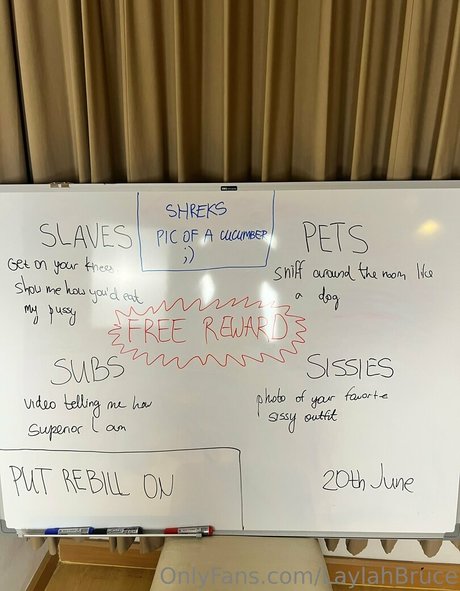 SLAVES
Get on your knees
Show me how you'd eat
my pussy
SHREKS
PIC OF A CUCUMBER
;)
PETS
Sniff around the room like
a dog
FREE REWARD
SUBS
video telling me how
superior I am
SISSIES
photo of your favorite
sissy outfit
PUT REBILL ON
20th June
OnlyFans.com/LaylahBruce